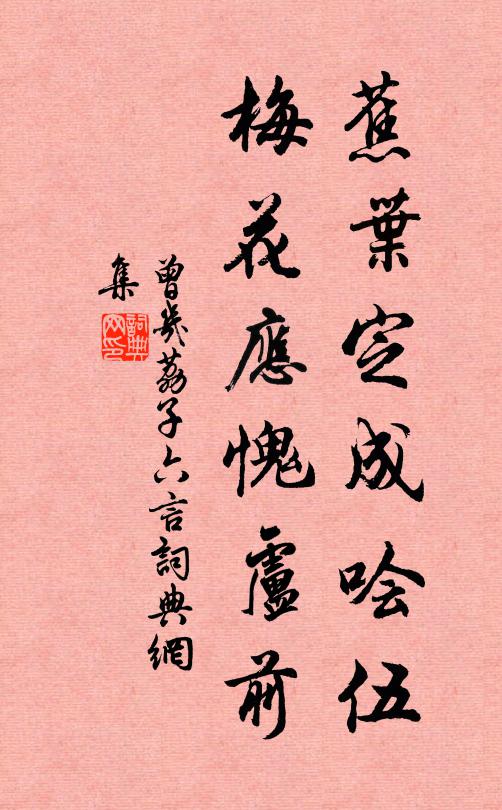 蕉葉定成噲伍
梅花應愧盧前
曾幾荔子六言詞典網
集
詞典網印